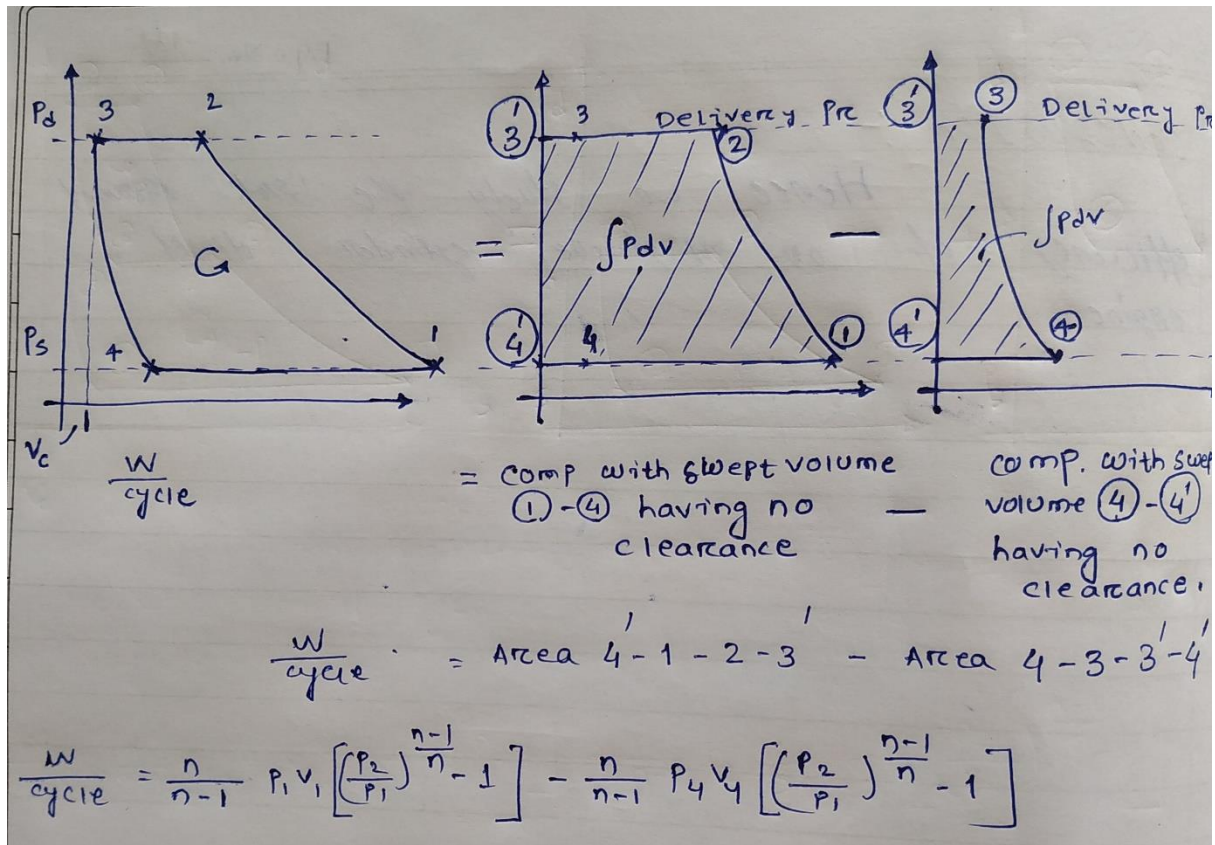 3 2
Pd
G
Ps
4 1
Vc
=
3' 3 Delivery Pr
2
∫Pdv
4' 4 1
−
3' 3 Delivery Pr
∫Pdv
4' 4
W/cycle = comp with swept volume ①-④ having no clearance − comp. with swep volume ④-④' having no clearance.
W/cycle = Area 4'-1-2-3' − Area 4-3-3'-4'
W/cycle = n/n-1 P₁V₁[(P₂/P₁)^(n-1/n) - 1] − n/n-1 P₄V₄[(P₂/P₁)^(n-1/n) - 1]